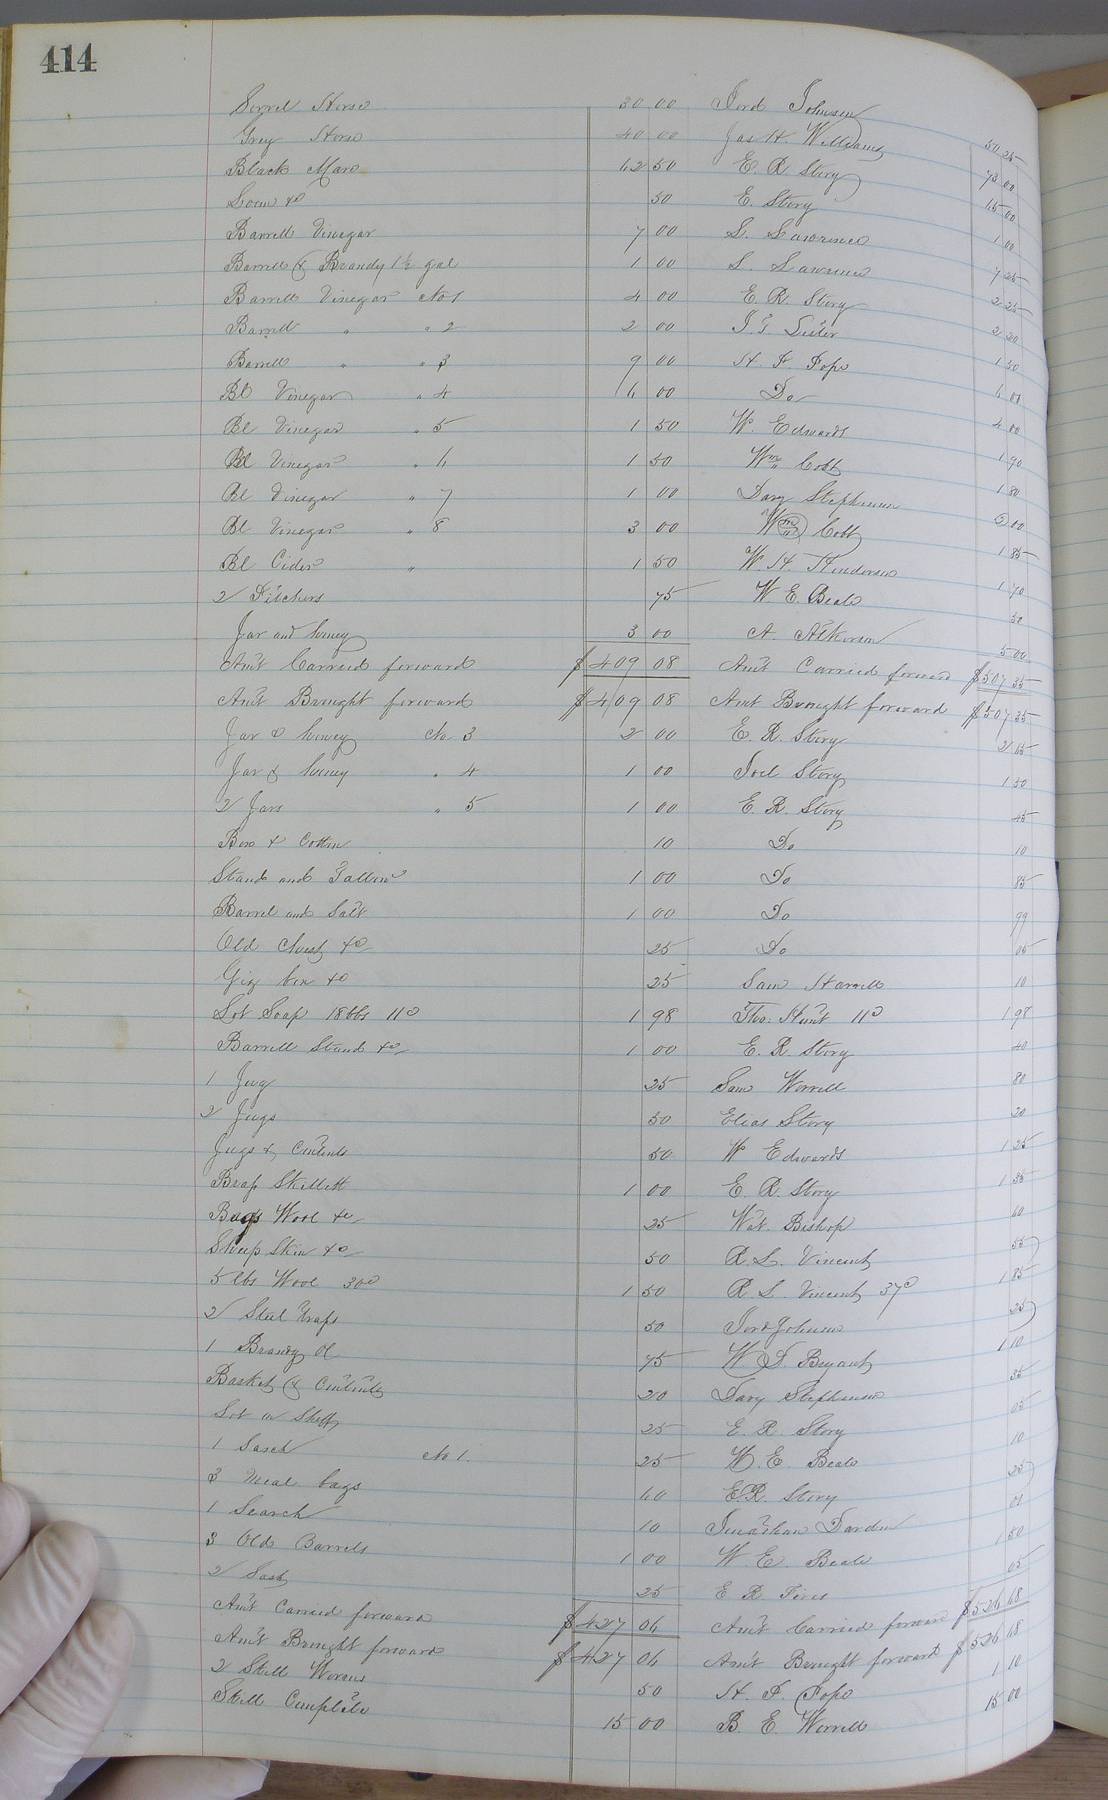 414
Sorrel Horse 30 00 Jord Johnson 50 25
Grey Horse 40 00 Jas H. Williams 73 00
Black Mare 62 50 E. R. Story 65 00
Loom &c 50 E. Story 1 00
Barrell Vinegar 7 00 L. Lawrence 7 25
Barrell & Brandy 1½ gal 1 00 L. Lawrence 2 25
Barrell Vinegar No 1 4 00 E. R. Story 2 20
Barrell " " 2 2 00 1 50
Barrell " " 3 9 00 H. F. Pope 6 00
Bl Vinegar " 4 6 00 Do 4 00
Bl Vinegar " 5 1 50 W. Edwards 1 90
Bl Vinegar " 6 1 50 Wm Cobb 1 80
Bl Vinegar " 7 1 00 Davy Stephenson 2 00
Bl Vinegar " 8 3 00 Wm Cobb 1 85
Bl Cider " 1 50 W. H. Henderson 1 70
2 Pitchers 75 W E. Beale 50
Jar and honey 3 00 A. Atkinson 5 00
Am't Carried forward $409 08 Am't Carried forward $507 35
Am't Brought forward $409 08 Amt Brought forward $507 35
Jar & honey No 3 2 00 E. R. Story 2 65
Jar & honey " 4 1 00 Joel Story 1 50
2 Jars " 5 1 00 E. R. Story 45
Box & Cotton 10 Do 10
Stand and Tallow 1 00 Do 85
Barrel and Salt 1 00 Do 99
Old Chest &c 25 Do 05
Gig box &c 25 Sam Harrell 10
Lot Soap 18 lbs 11c 1 98 Tho: Hunt 11c 1 98
Barrell Stand &c 1 00 E. R Story 40
1 Jug 25 Sam Worrell 80
2 Jugs 50 Elias Story 20
Jugs & Contents 50 W Edwards 1 25
Brass Skillett 1 00 E. R. Story 1 35
Bags Wool &c 25 Wat. Bishop 60
Sheep Skin &c 50 R L. Vincent 55
5 lbs Wool 30c 1 50 R L. Vincent 37c 1 85
2 Steel Traps 50 Jord Johnson 25
1 Brandy 75 W D. Bryant 1 10
Basket & Contents 20 Davy Stephenson 35
Lot on Shelf 25 E. R. Story 05
1 No 1. 25 W. E. Beale 10
3 Meal bags 60 E R. Story 25
1 Search 10 Jonathan Darden 01
3 Old Barrels 1 00 W E. Beale 1 50
2 25 E R 05
Am't Carried forward $427 06 Am't Carried forward $526 68
Am't Brought forward $427 06 Am't Brought forward $526 68
2 Still Worms 50 H. F. Pope 1 10
Still Complete 15 00 B. E. Worrell 15 00